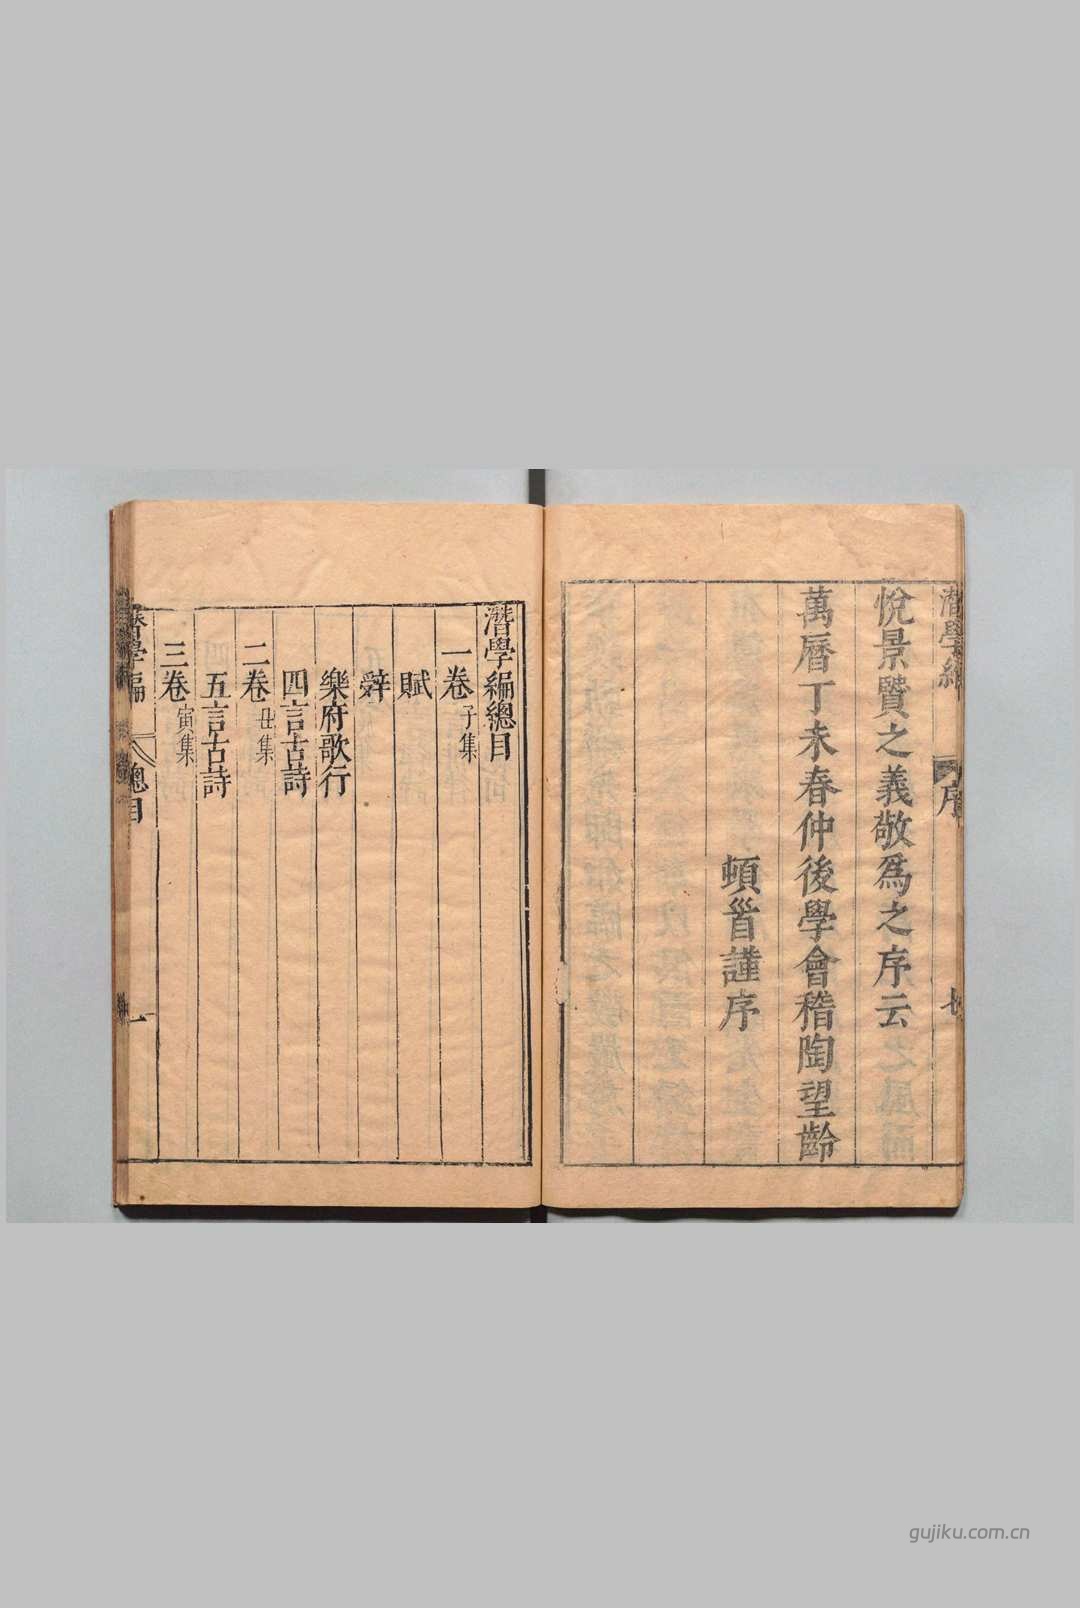 悅景贒之義敬爲之序云
萬曆丁未春仲後學會稽陶望齡
頓首謹序
序
七
潛學編總目
一卷 子集
賦
辭
樂府歌行
四言古詩
二卷 丑集
五言古詩
三卷 寅集
潛學編
總目
一
gujiku.com.cn